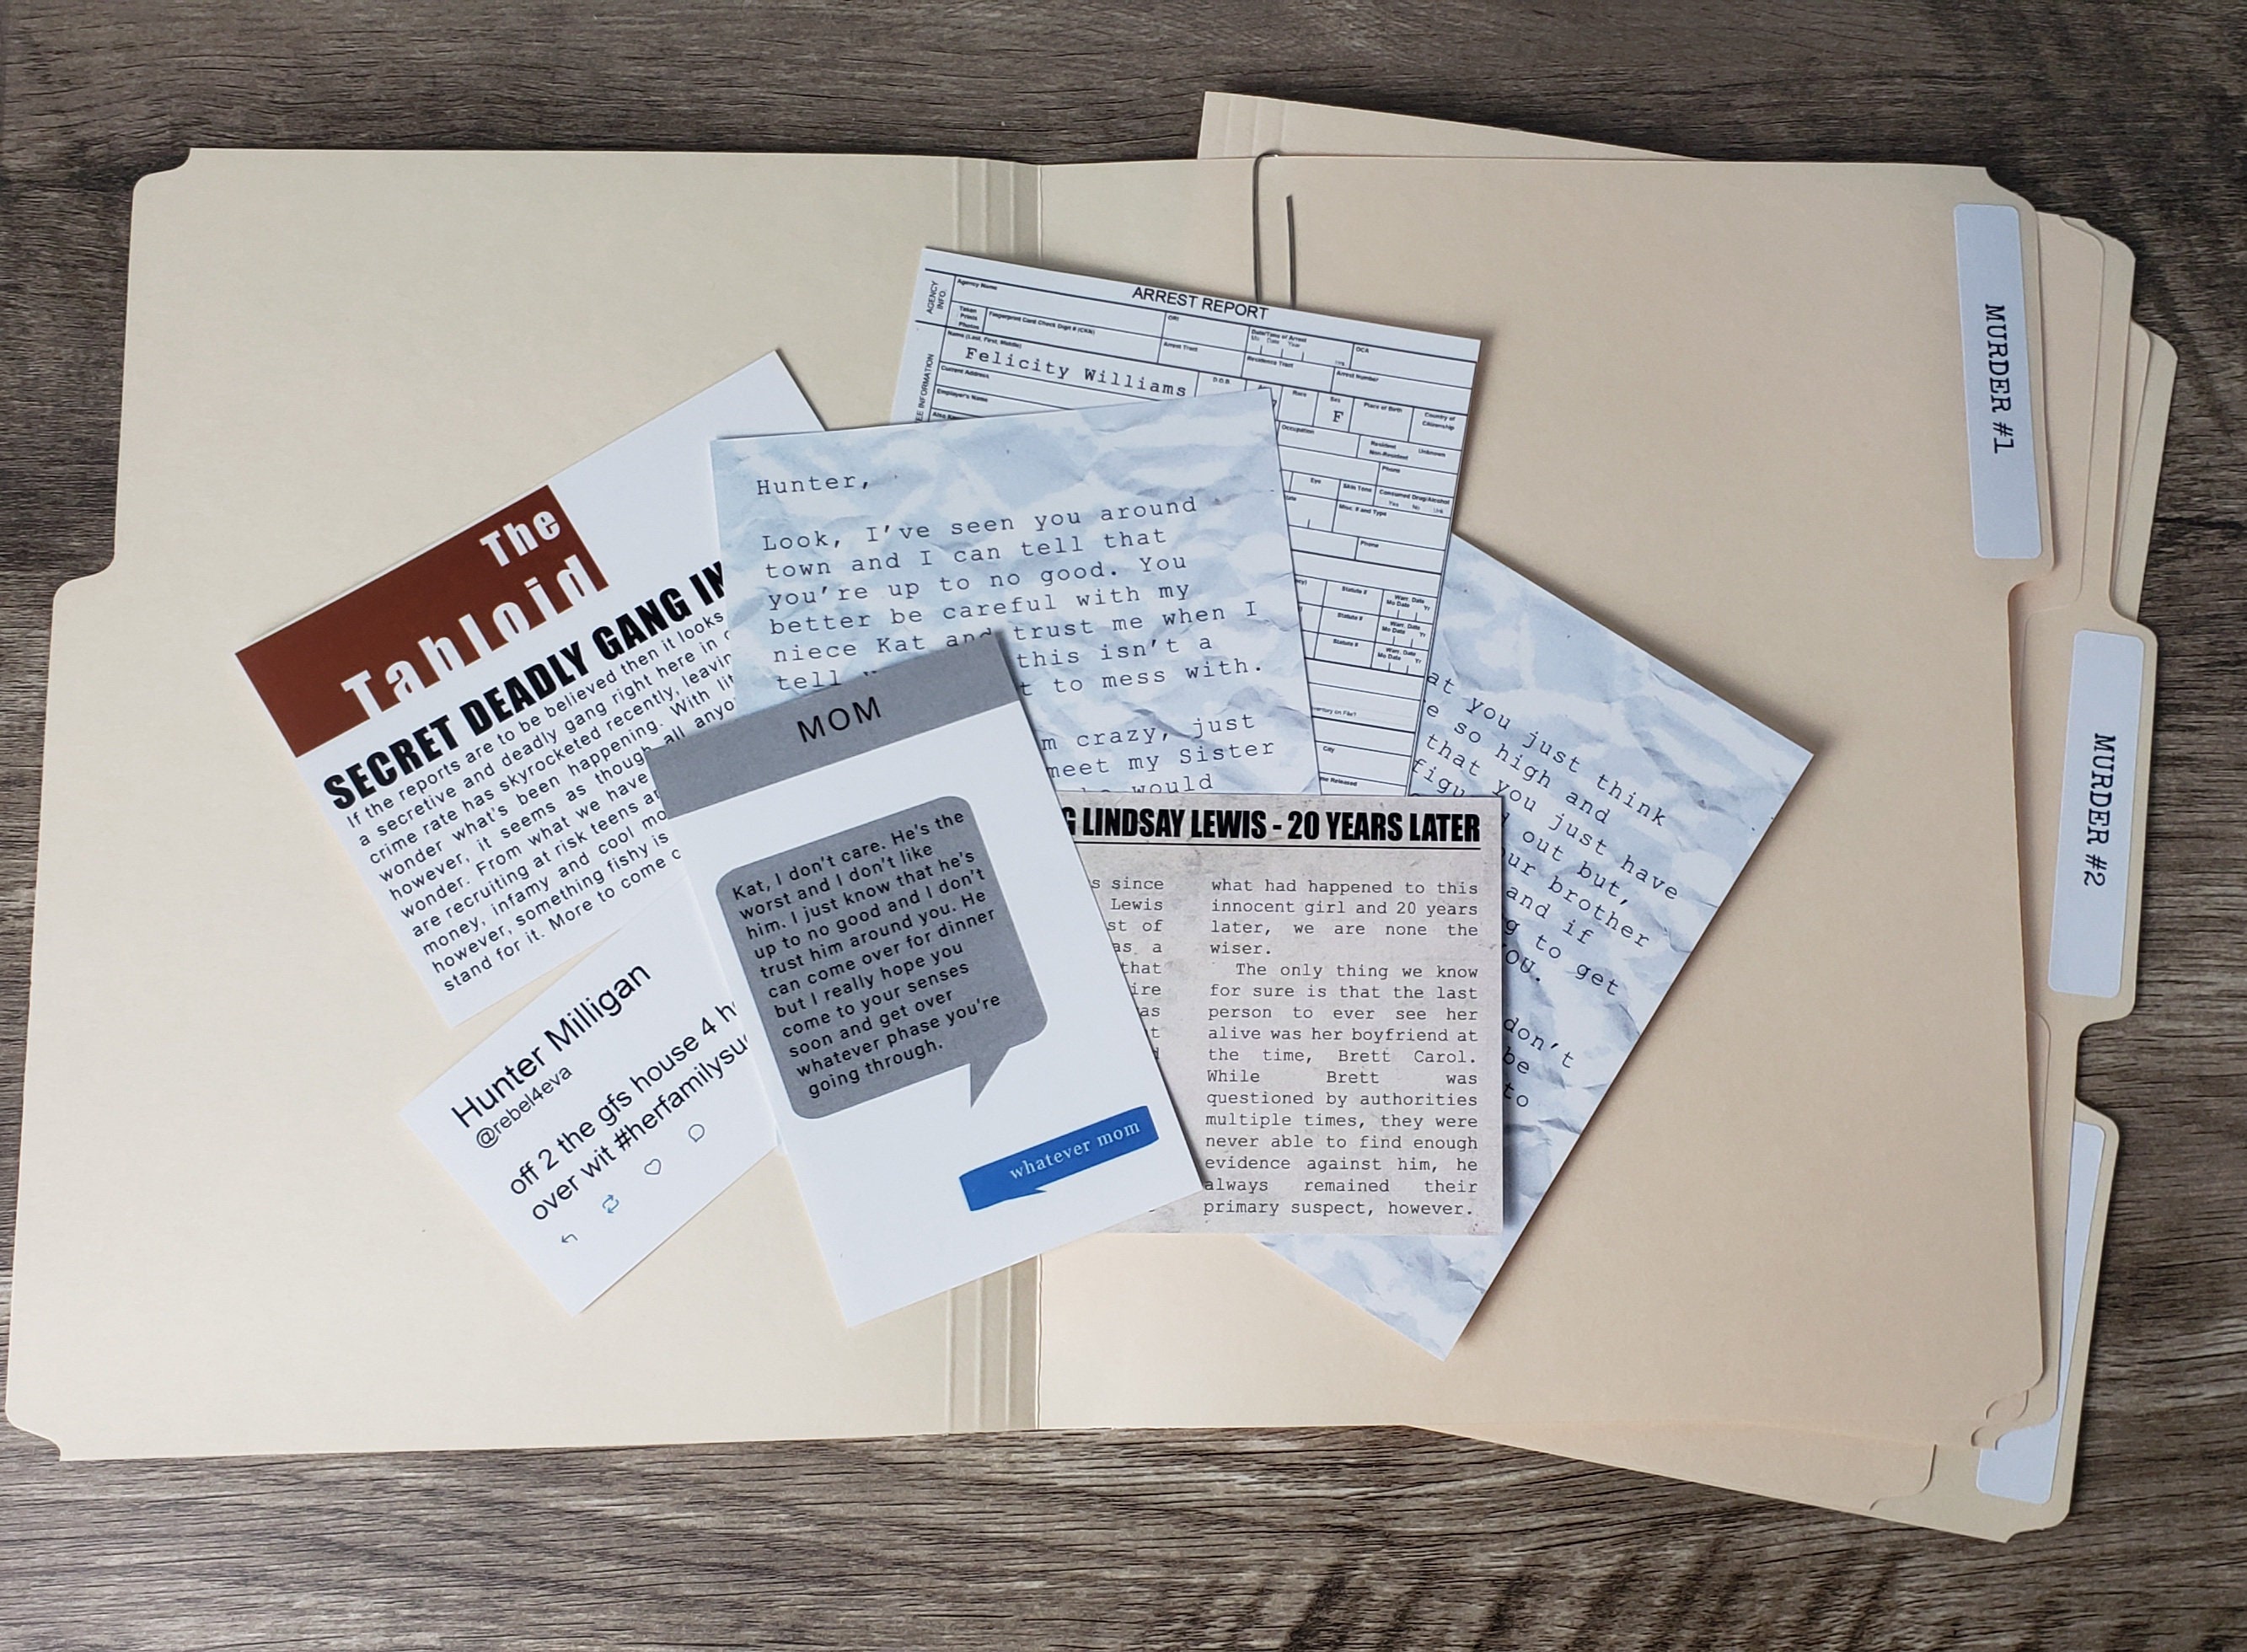 ARREST REPORT
AGENCY INFO.
Agency Name
ORI
Date/Time of Arrest
Mo Date Year
OCA
Taken Prints Photos
Fingerprint Card Check Digit # (CKN)
Arrest Tract
Residence Tract
Arrest Number
Name (Last, First, Middle)
Felicity Williams
D.O.B.
Race
Sex
F
Place of Birth
Country of Citizenship
Current Address
Employer's Name
Occupation
Resident
Non-Resident
Unknown
Phone
Eye
Skin Tone
Consumed Drug/Alcohol
Yes No Unk
Misc. # and Type
Phone
Statute #
Warr. Date
Mo Date Yr
Statute #
Warr. Date
Mo Date Yr
Statute #
Warr. Date
Mo Date Yr
City
Released
MURDER #1
MURDER #2
The
Tabloid
SECRET DEADLY GANG IN
If the reports are to be believed then it looks
a secretive and deadly gang right here in
crime rate has skyrocketed recently, leavin
wonder what's been happening. With lit
however, it seems as though all anyo
wonder. From what we have
are recruiting at risk teens
money, infamy and cool mo
however, something fishy is
stand for it. More to come
Hunter,
Look, I've seen you around
town and I can tell that
you're up to no good. You
better be careful with my
niece Kat and trust me when I
tell this isn't a
t to mess with.
m crazy, just
meet my Sister
would
MOM
Kat, I don't care. He's the
worst and I don't like
him. I just know that he's
up to no good and I don't
trust him around you. He
can come over for dinner
but I really hope you
come to your senses
soon and get over
whatever phase you're
going through.
whatever mom
Hunter Milligan
@rebel4eva
off 2 the gfs house 4
over wit #herfamilysu
G LINDSAY LEWIS - 20 YEARS LATER
s since
Lewis
st of
as a
that
ire
as
t
what had happened to this
innocent girl and 20 years
later, we are none the
wiser.
The only thing we know
for sure is that the last
person to ever see her
alive was her boyfriend at
the time, Brett Carol.
While Brett was
questioned by authorities
multiple times, they were
never able to find enough
evidence against him, he
always remained their
primary suspect, however.
at you just think
e so high and
that you just have
figu out but,
ur brother
and if
g to get
OU.
don't
be
to